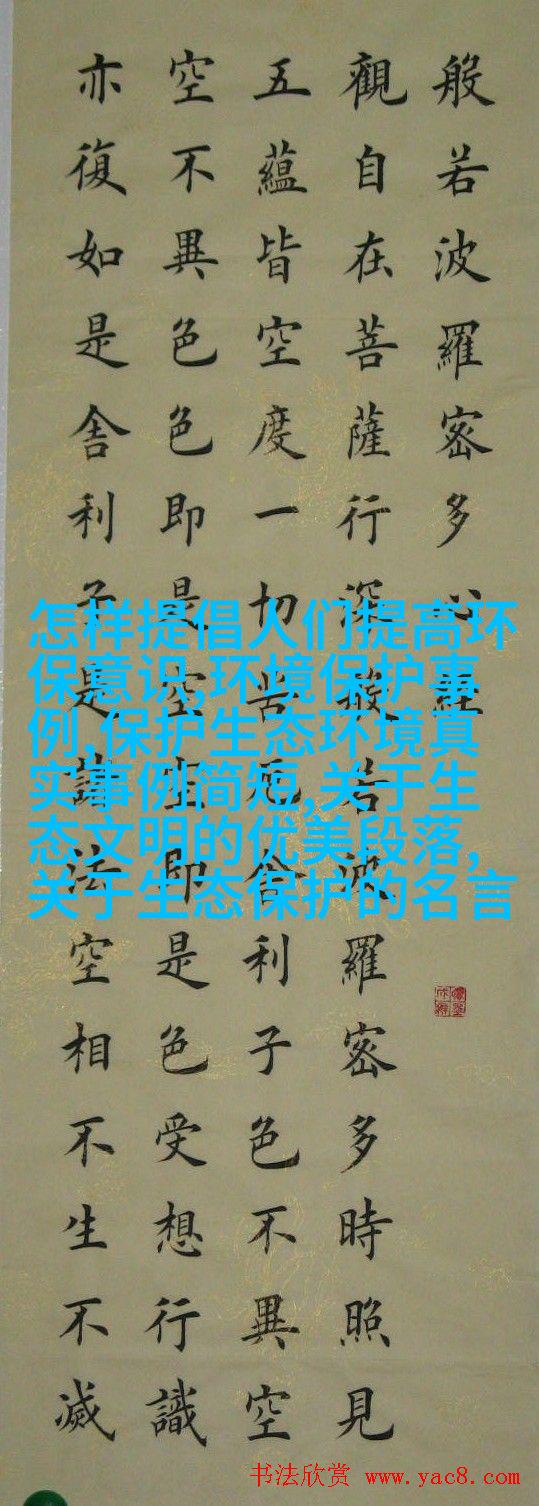 般若波羅密多心經
觀自在菩薩行深般若波羅密多時照見
五蘊皆空度一切苦厄舍利子色不異空
空不異色色即是空空即是色受想行識
亦復如是舍利子是諸法空相不生不滅
怎样提倡人们提高环
保意识,环境保护事
例,保护生态环境真
实事例简短,关于生
态文明的优美段落,
关于生态保护的名言
书法欣赏 www.yac8.com